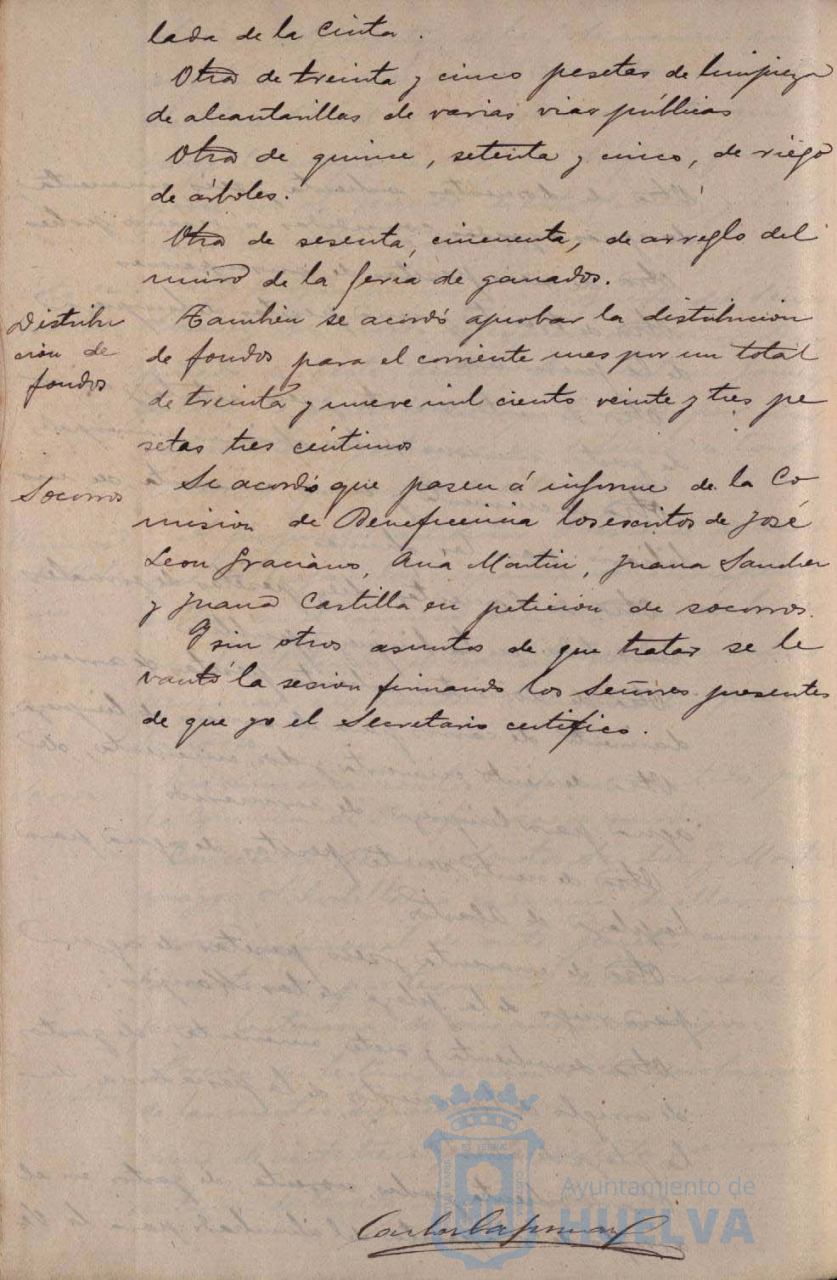 lada de la Cinta.
Otra de treinta y cinco pesetas de limpieza
de alcantarillas de varias vias públicas
Otra de quince, setenta y cinco, de riego
de árboles.
Otra de sesenta, cincuenta, de arreglo del
muro de la feria de ganados.
Distribu
cion de
fondos
Tambien se acordó aprobar la distribucion
de fondos para el corriente mes por un total
de treinta y nueve mil ciento veinte y tres pe
setas tres céntimos
Socorros
Se acordó que pasen á informe de la Co
mision de Beneficencia los escritos de José
Leon Graciano, Ana Martin, Juana Sanchez
y Juana Castilla en peticion de socorros.
Y sin otros asuntos de que tratar se le
vantó la sesion firmando los Señores presentes
de que yo el Secretario certifico.
Ayuntamiento de
HUELVA